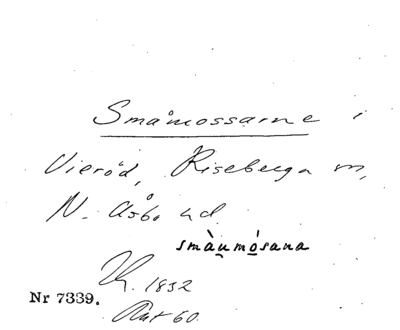 Småmossarne i
Vieröd, Riseberga sn,
N. Åsbo hd.
smàu̲mó̲sana
1832
Nr 7339.
60